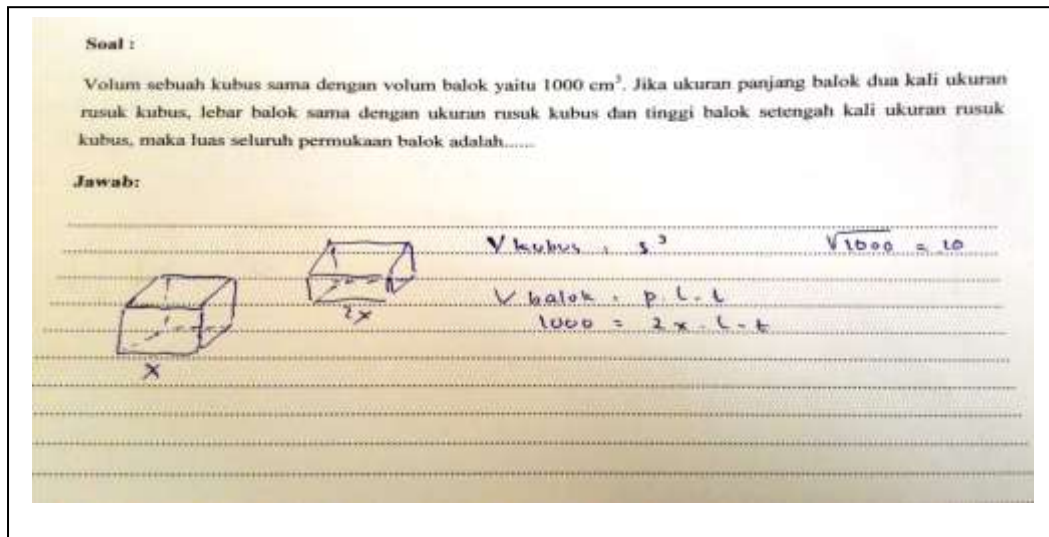 Soal :
Volum sebuah kubus sama dengan volum balok yaitu 1000 cm³. Jika ukuran panjang balok dua kali ukuran
rusuk kubus, lebar balok sama dengan ukuran rusuk kubus dan tinggi balok setengah kali ukuran rusuk
kubus, maka luas seluruh permukaan balok adalah......
Jawab:
V kubus = s³ √1000 = 10
V balok = p. l. t
1000 = 2x . l . t
2x
x